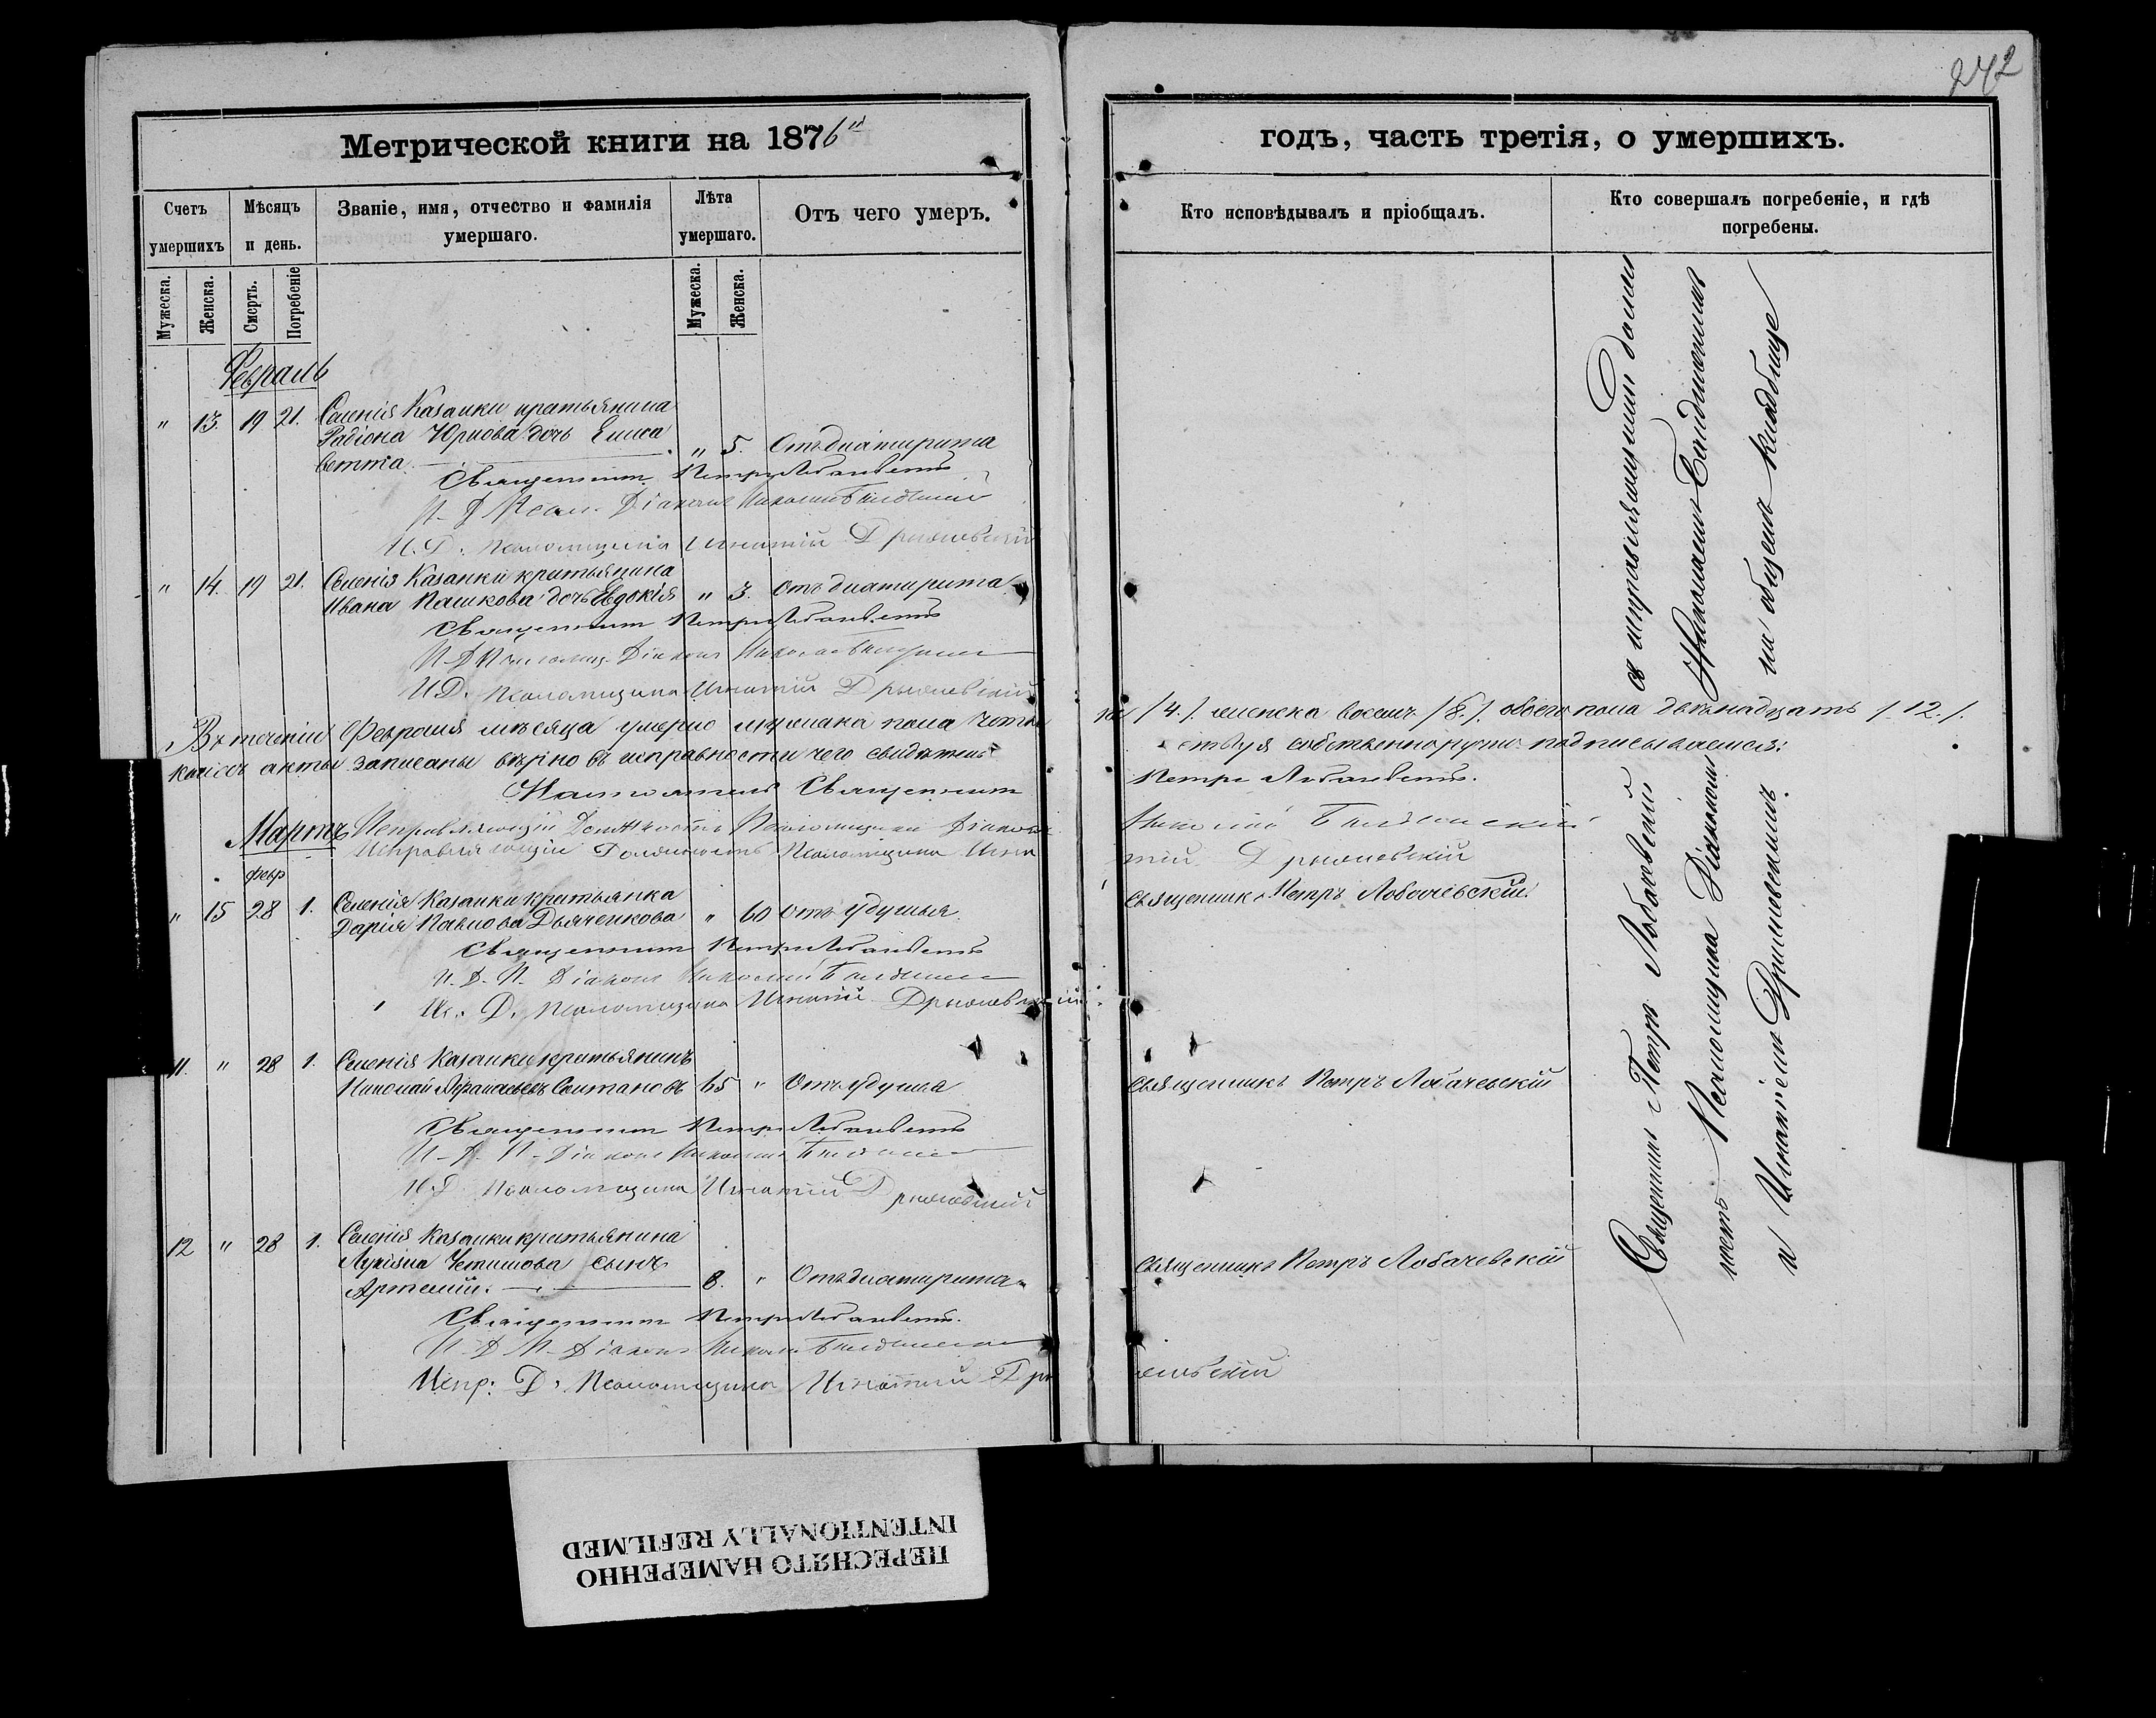 242
Метрической книги на 1876й
годъ, часть третія, о умершихъ.
Счетъ умершихъ
Мѣсяцъ и день.
Званіе, имя, отчество и фамилія умершаго.
Лѣта умершаго.
Отъ чего умеръ.
Кто исповѣдывалъ и пріобщалъ.
Кто совершалъ погребеніе, и гдѣ погребены.
Мужеска.
Женска.
Смерть.
Погребеніе
Мужеска.
Женска.
Февраль
" 13. 19 21. Селенія Казанки крестьянина
Радіона Юркова дочь Елиса
ветта. " 5. Отъ диатирита
Священник Петръ Лобачевскій
И. Д. Псал. Діаконъ Николай
И. Д. Псаломщика Игнатій Дрыжевскій
" 14. 19 21. Селенія Казанки крестьянина
Ивана Пашкова дочь Евдокія " 3. Отъ диатирита
Священник Петръ Лобачевскій
И. Д. Псаломщ. Діаконъ Николай
И. Д. Псаломщика Игнатій Дрыжевскій
Въ теченіи Февраля мѣсяца умерло мужеска пола четы
ре /4./ женска восемь /8./ обоего пола двѣнадцать /12./.
акты записаны вѣрно въ исправности чего свидѣтель
ствуя собственноручно подписываемся:
Настоятель Священник
Петръ Лобачевскій.
Мартъ
Исправляющій Должность Псаломщика Діаконъ
Николай
Исправляющій Должность Псаломщика Игна
тій Дрыжевскій
февр
" 15 28 1. Селенія Казанки крестьянка
Дарія Павлова Дьяченкова " 60 Отъ удушья.
Священникъ Петръ Лобачевскій
Священник Петръ Лобачевскій
И. Д. П. Діаконъ Николай
Ис. Д. Псаломщика Игнатій Дрыжевскій
11. " 28 1. Селенія Казанки крестьянинъ
Николай Афанасьевъ Солтановъ 65 " Отъ удушья
Священникъ Петръ Лобачевскій
Священник Петръ Лобачевскій
И. Д. П. Діаконъ Николай
И. Д. Псаломщика Игнатій Дрыжевскій
12 " 28 1. Селенія Казанки крестьянина
сынъ
Артемій. 8. " Отъ диатирита
Священникъ Петръ Лобачевскій
Священник Петръ Лобачевскій.
И. Д. П. Діаконъ Николай
Испр. Д. Псаломщика Игнатій Дры
жевскій
Священник Петръ Лобачевскій съ исправляющими долж
ность Псаломщика Діакономъ Николаемъ
и Игнатіемъ Дрыжевскимъ на общемъ кладбище
ПЕРЕСНЯТО НАМЕРЕННО
INTENTIONALLY REFILMED